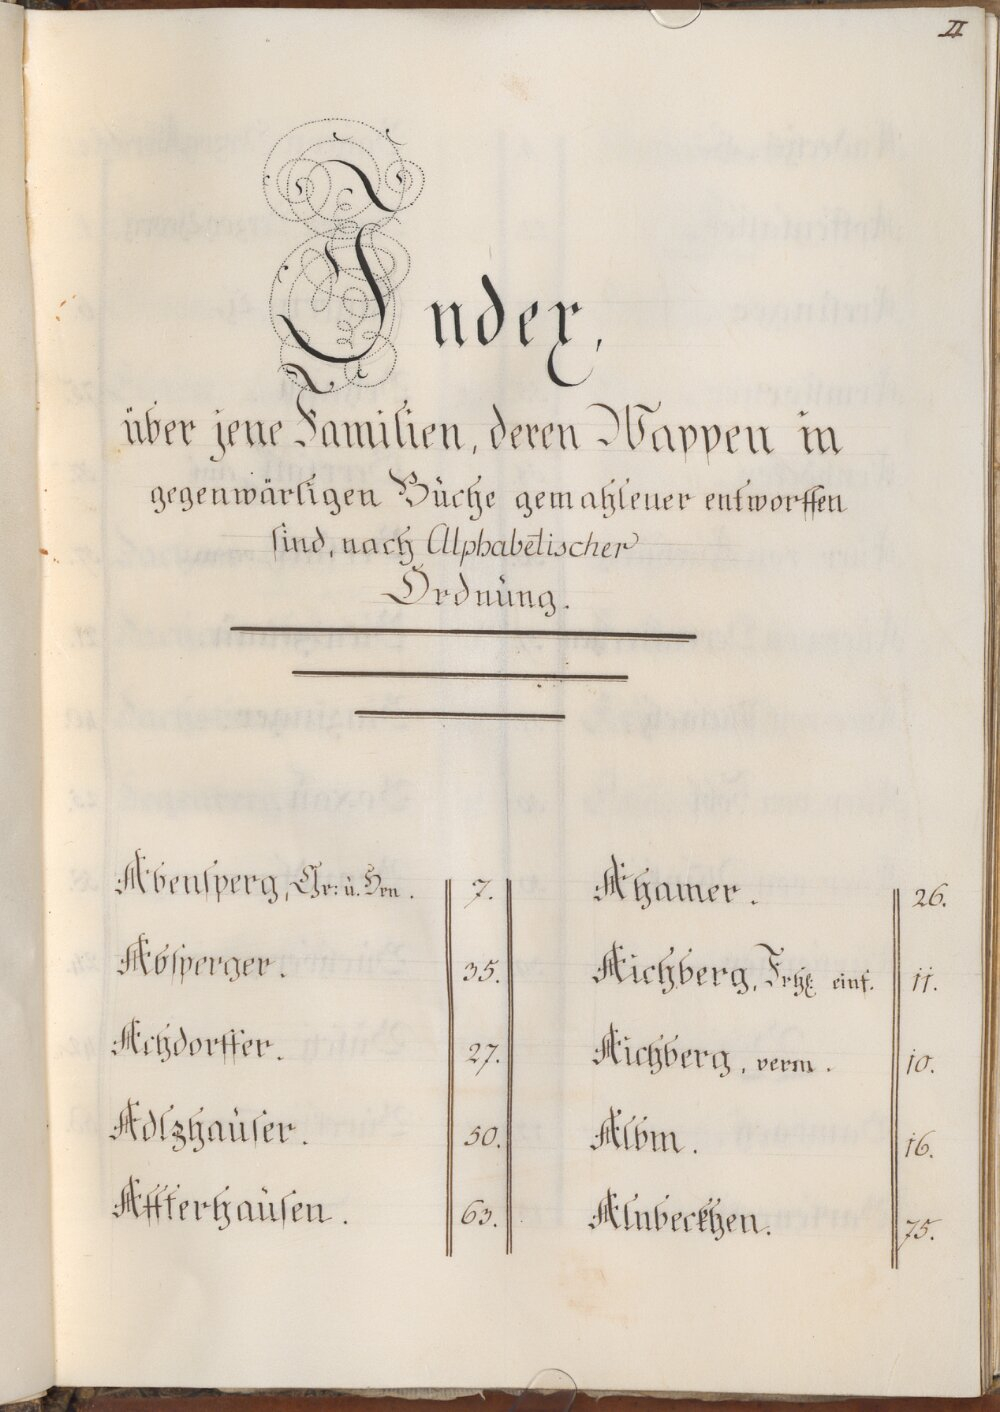 II
Index,
über jene Familien, deren Wappen in
gegenwärtigen Büche gemahlener entworffen
sind, nach Alphabetischer
Ordnüng.
Abensperg, Gr: ü. Hrn. 7.
Absperger. 35.
Achdorffer. 27.
Adlzhaüser. 50.
Affterhaüsen. 63.
Ahamer. 26.
Aichberg, Frh: eint. 11.
Aichberg, verm. 10.
Albm. 16.
Alnbeckhen. 75.